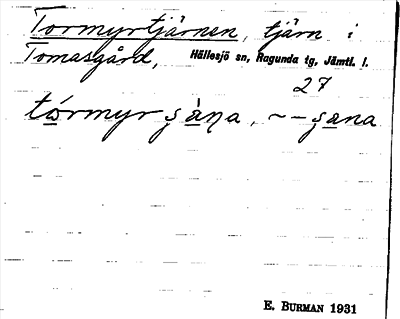 Tormyrtjärnen, tjärn i
Tomasgård, Hällesjö sn, Ragunda tg, Jämtl. l.
27
tǿrmyr ʂàɳa, ~ – ʂana
E. BURMAN 1931